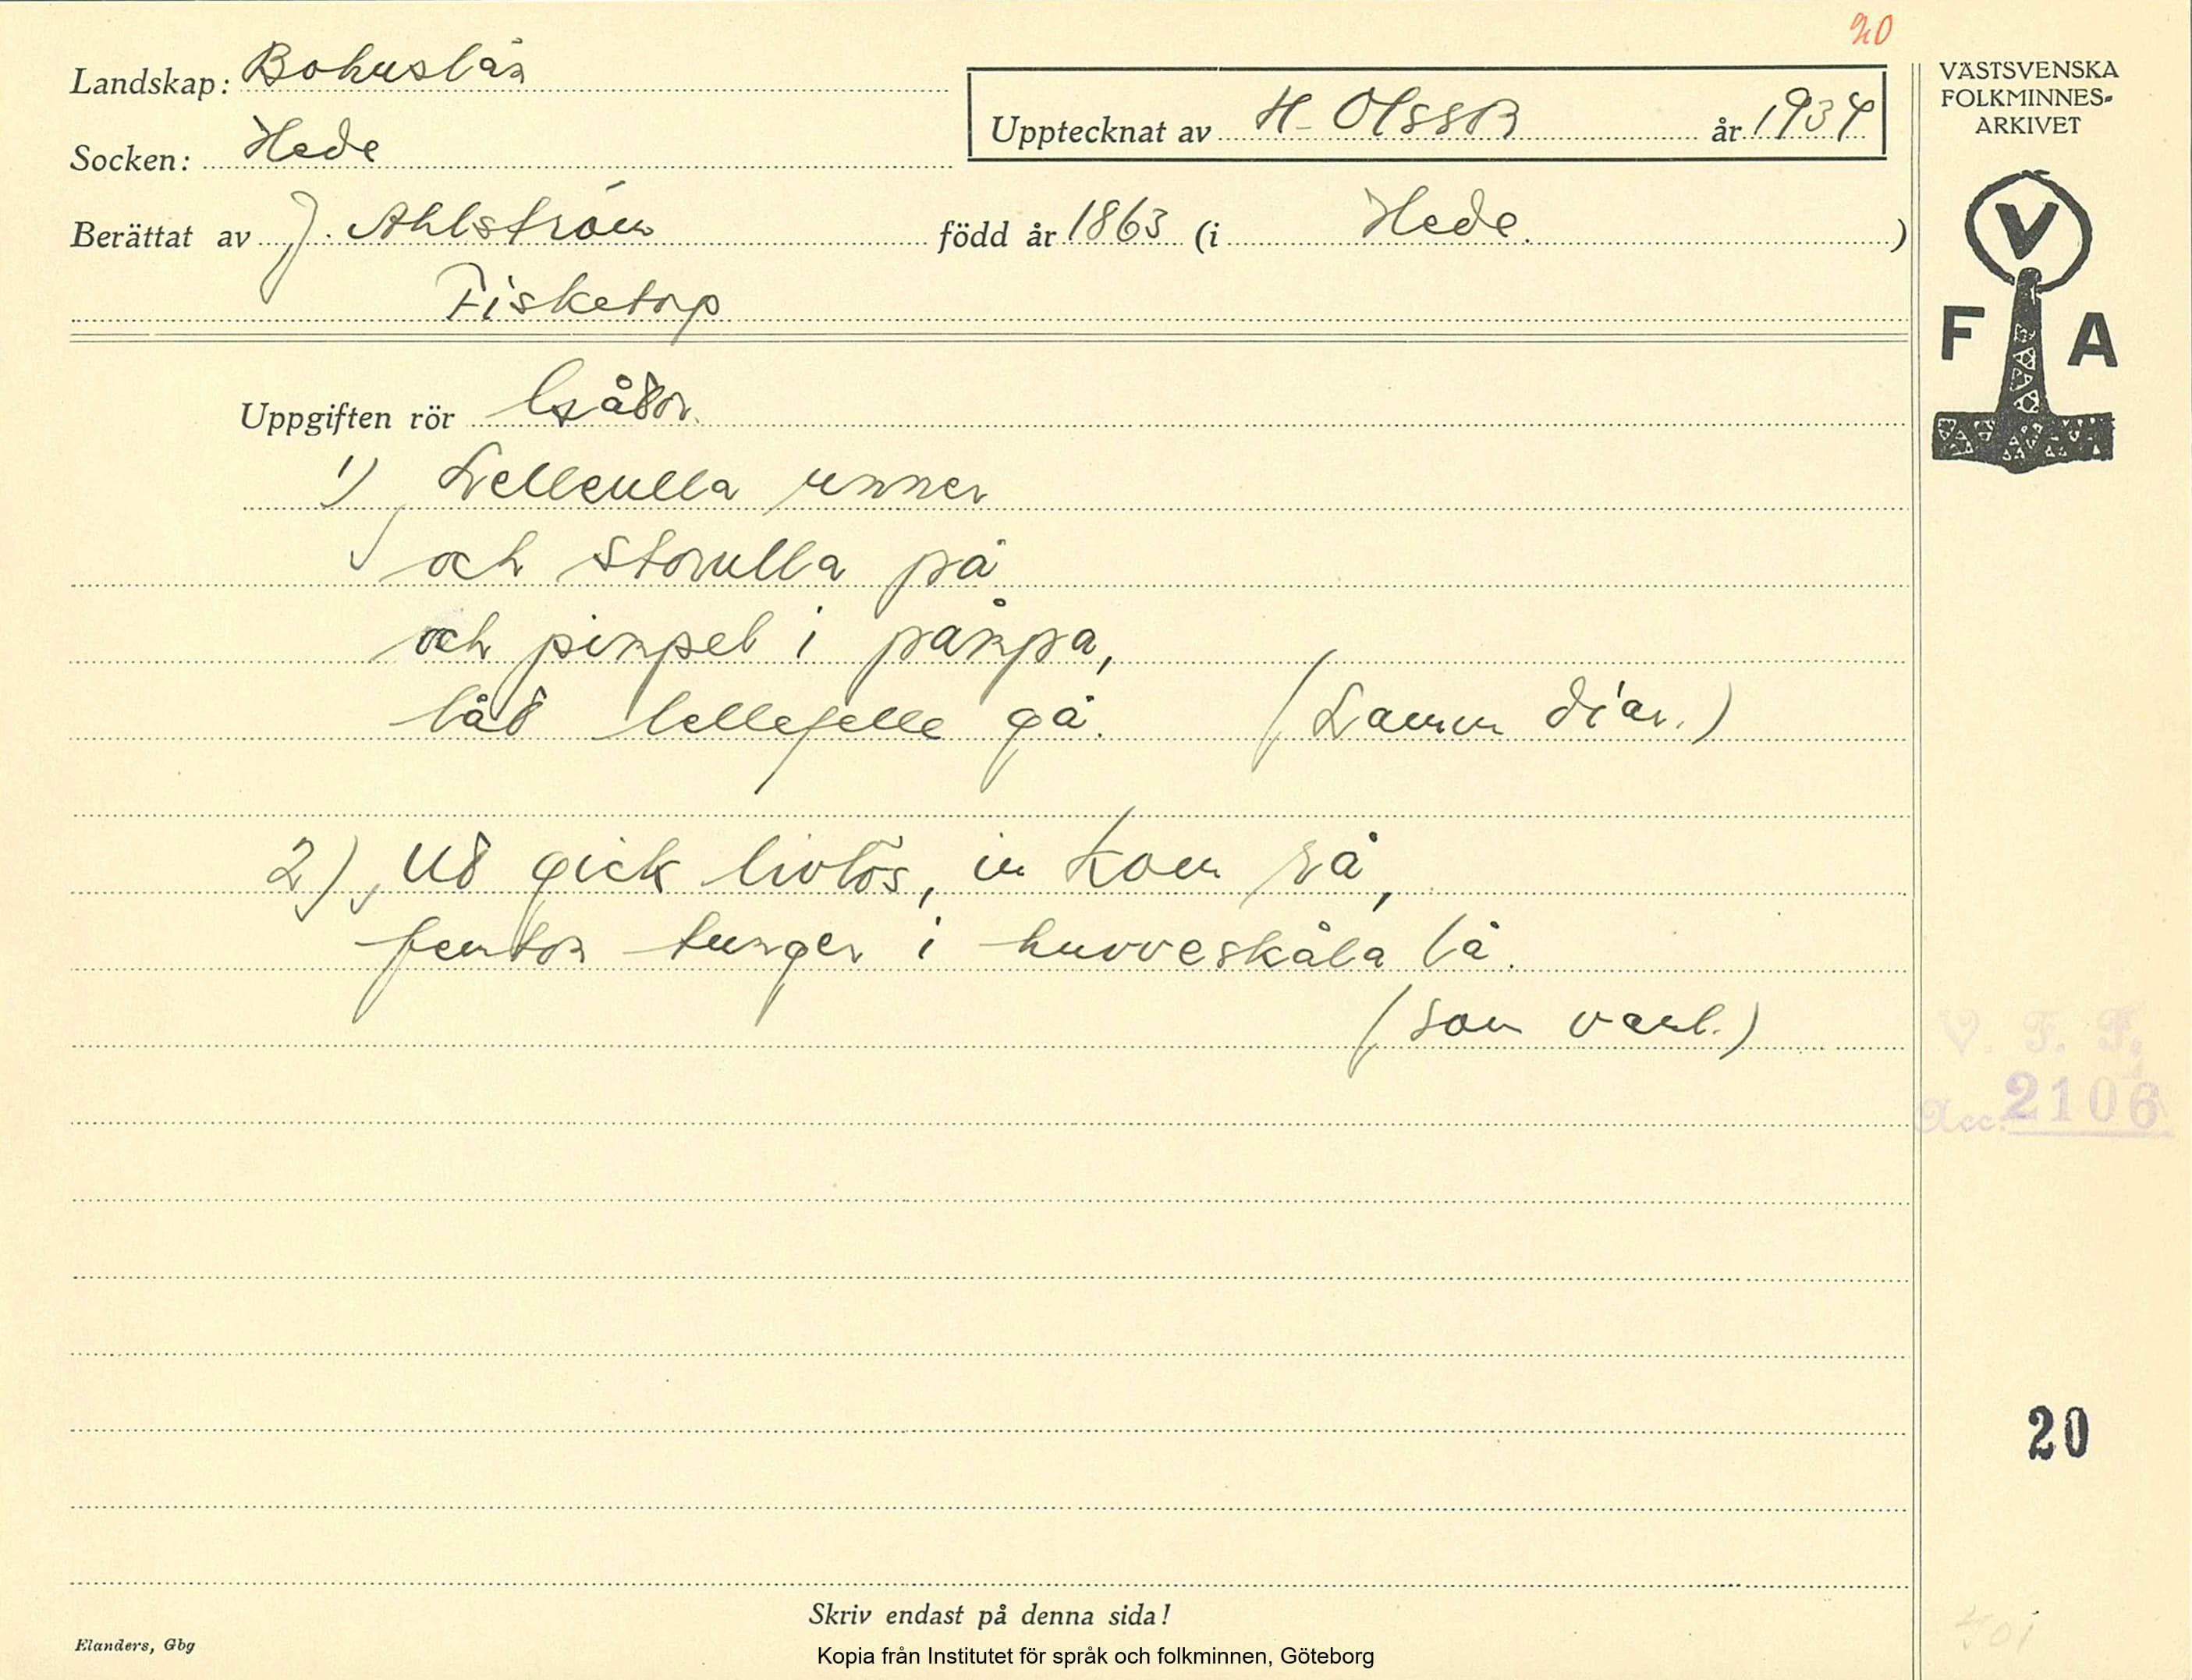 20
Landskap: Bohuslän
Socken: Hede
Upptecknat av H. Olsson år 1934
Berättat av J. Ahlström född år 1863 (i Hede.)
Fisketorp
VÄSTSVENSKA
FOLKMINNES-
ARKIVET
V
F A
Uppgiften rör Gåtor.
1) Lelleulla unner
och storulla på
och pinpel i pånpa,
låt lellepelle gå. (Lamm diar.)
2) Ut gick livlös, in kom rå,
femton tunger i huvveskåla lå.
(som vanl.)
V. F. F.
Acc. 2106
20
Skriv endast på denna sida!
Elanders, Gbg
Kopia från Institutet för språk och folkminnen, Göteborg